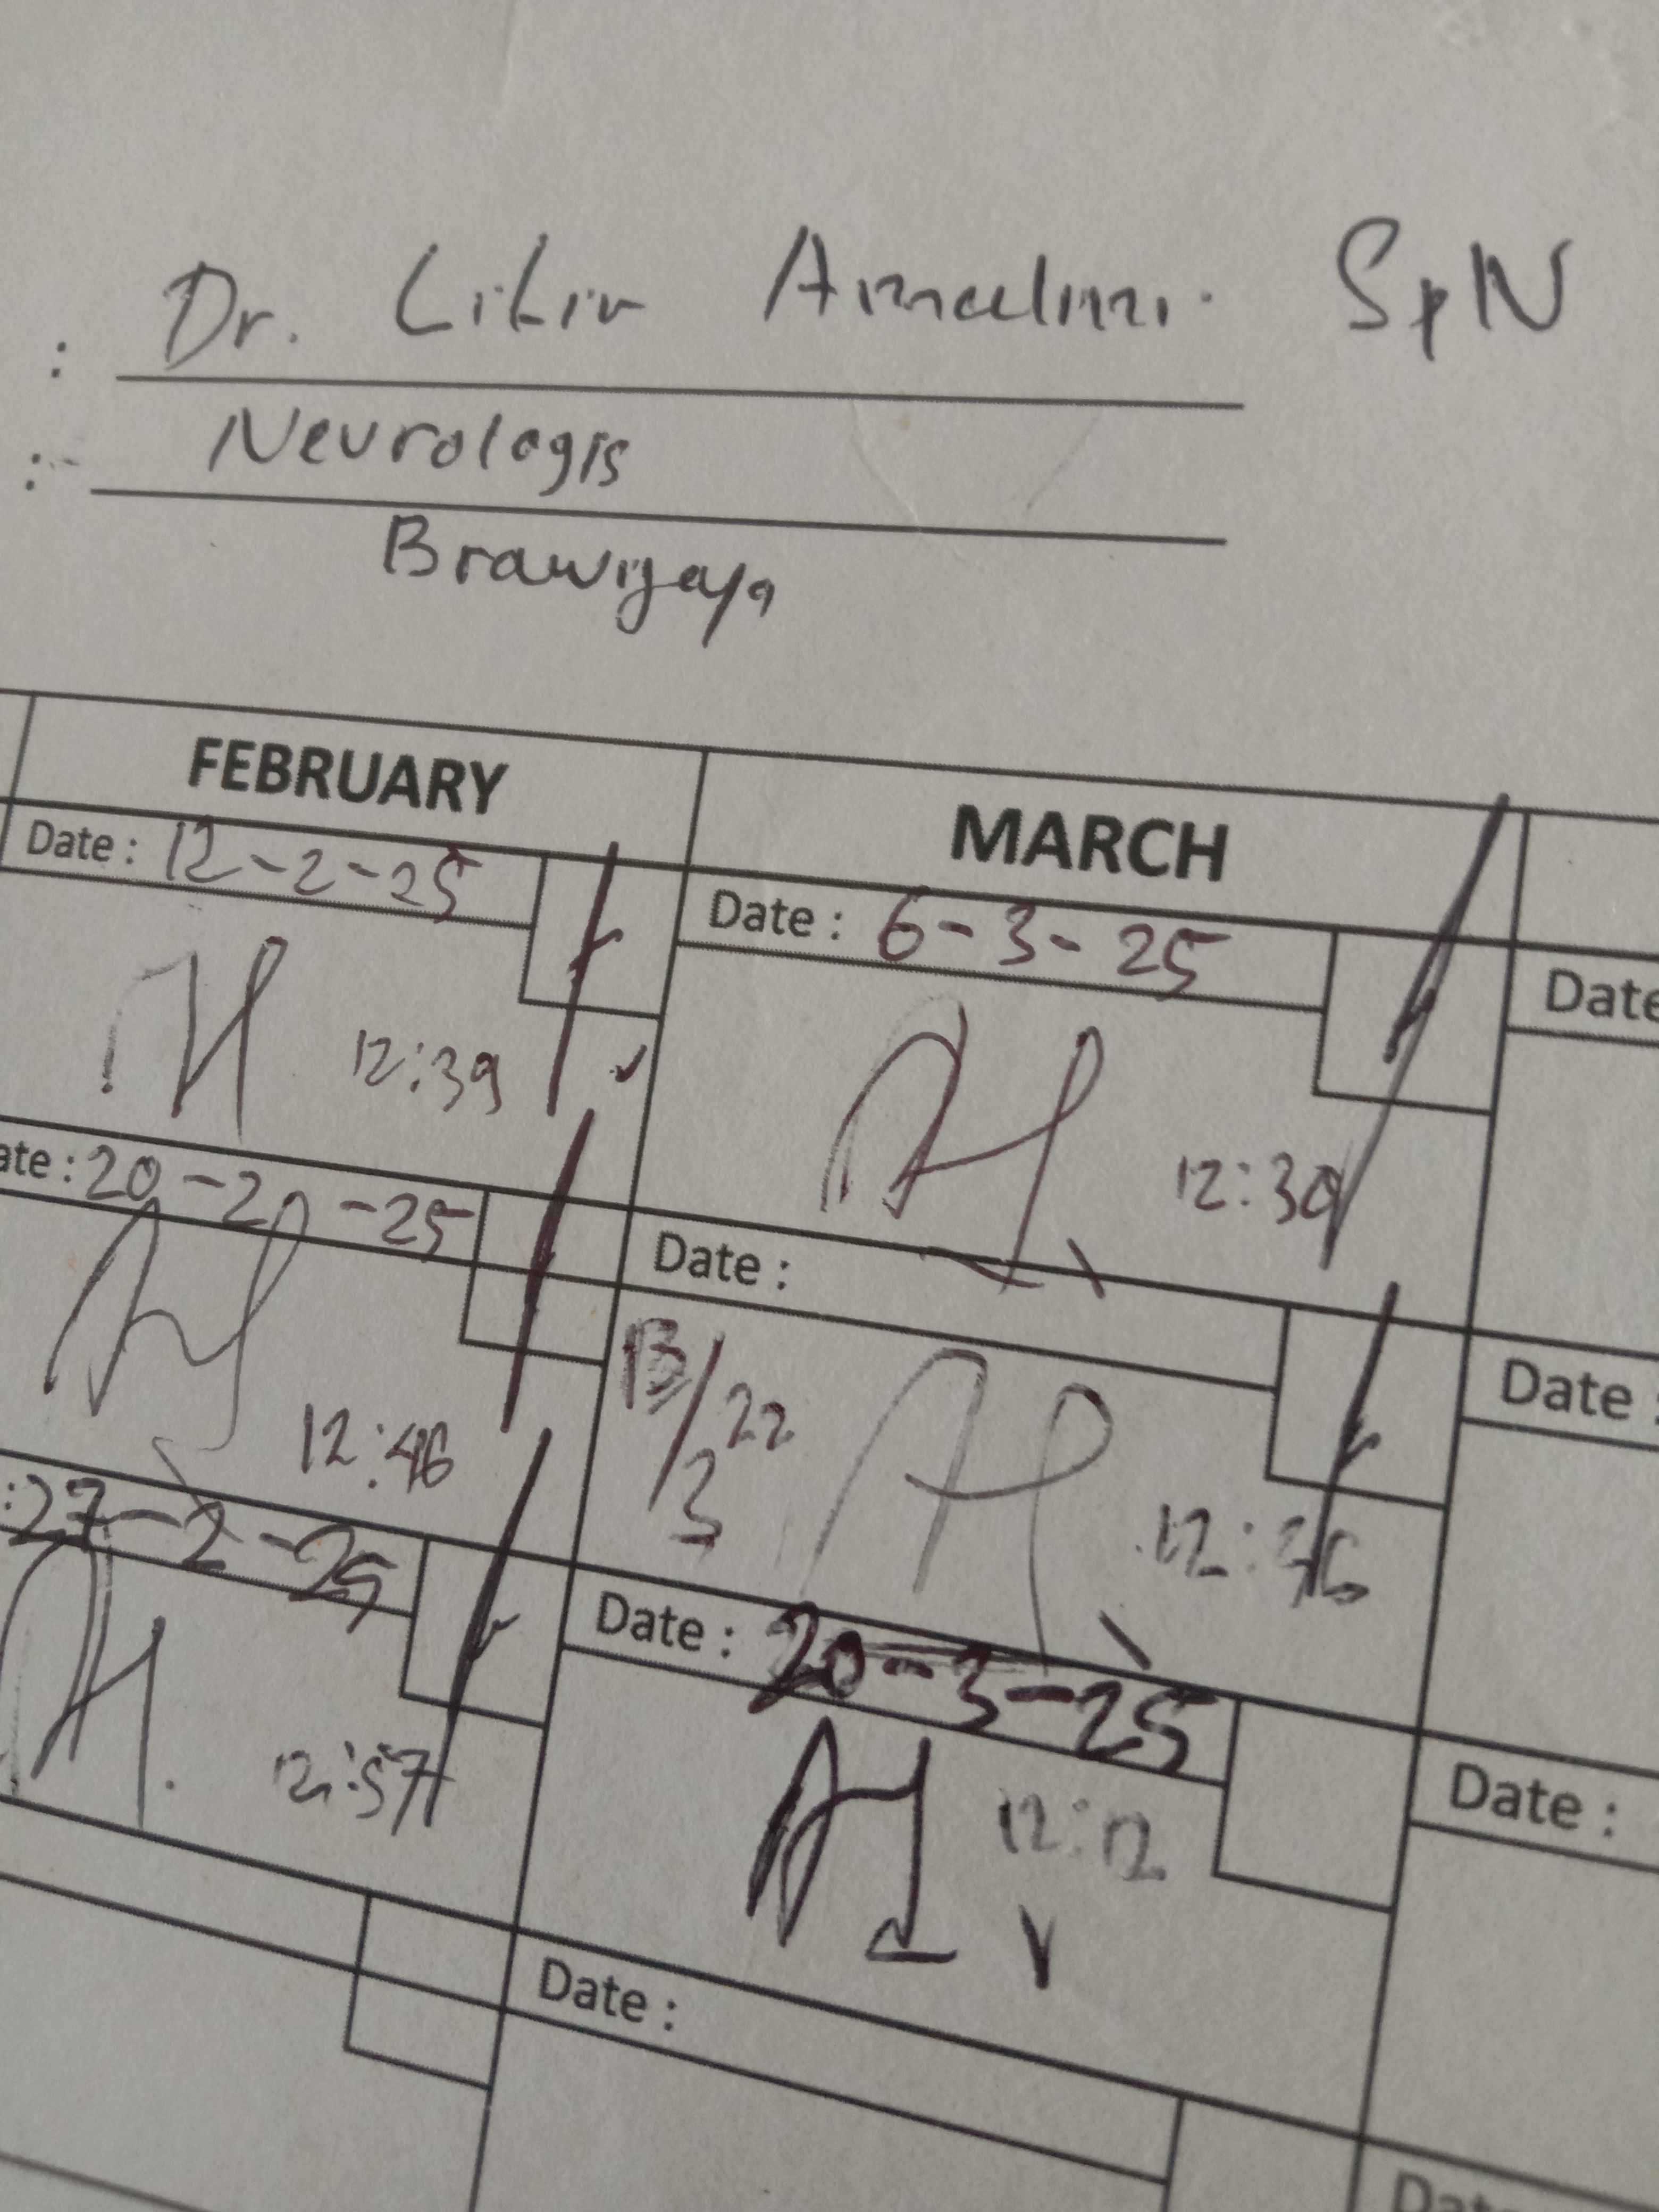 : Dr. Amalini SpN
: Neurologis
Brawijaya
FEBRUARY
Date : 12-2-25
12:39
ate : 20-2-25
12:46
: 27-2-25
12:57
MARCH
Date : 6-3-25
12:30
Date :
13/3
12:
Date : 20-3-25
12:12
Date :
Date
Date :
Date :
Dat